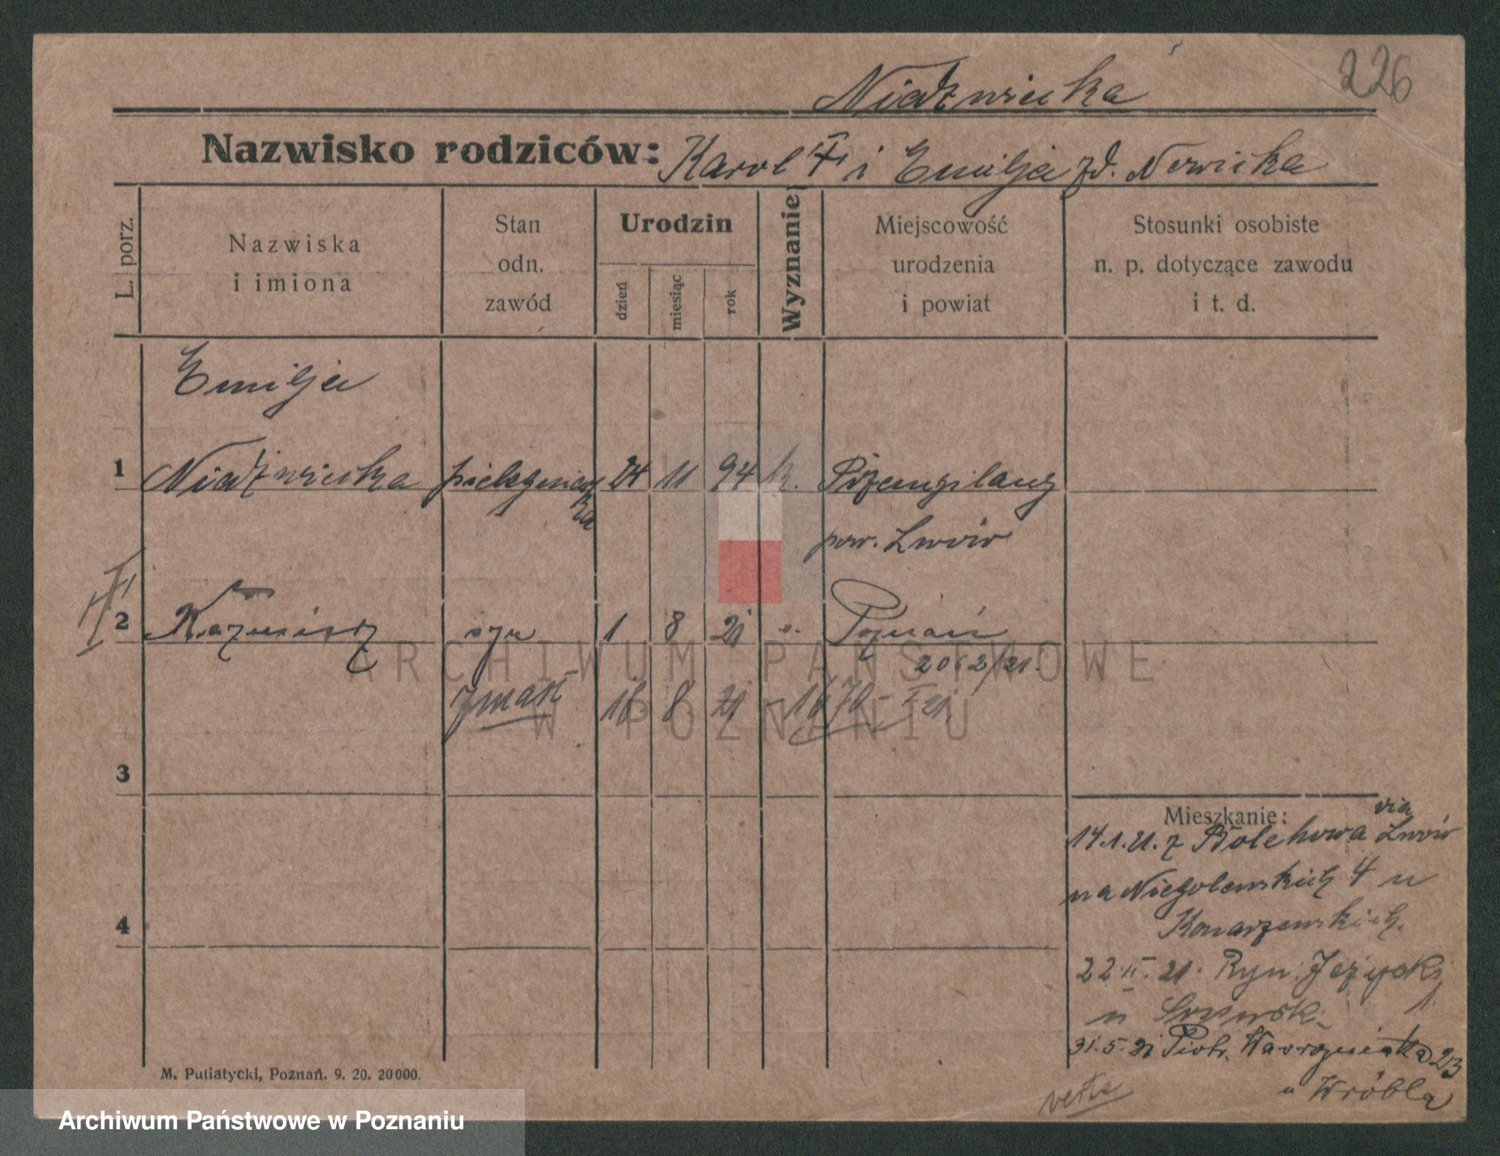 226
Niedzwiecka
Nazwisko rodziców: Karol i Emilja zd. Newicka
L. porz.
Nazwiska
i imiona
Stan
odn.
zawód
Urodzin
dzień
miesiąc
rok
Wyznanie
Miejscowość
urodzenia
i powiat
Stosunki osobiste
n. p. dotyczące zawodu
i t. d.
Emilja
1 Niedzwiecka 11 94 k.
pow. Lwów
2 Kazmierz syn 1 8 21 Poznań
2062/21.
zmarł 16 8 21
3
4
Mieszkanie:
14.1.21. z Bolehowa via Lwów
na Niegolewskich 4 u
Konarzewskich.
22.II.21. Ryn. Jeżycki 1
u
31.5.21 Piotr. Wawrzyniaka 23
u Wróbla
verte
M. Putiatycki, Poznań. 9. 20. 20000.
ARCHIWUM PAŃSTWOWE
W POZNANIU
Archiwum Państwowe w Poznaniu